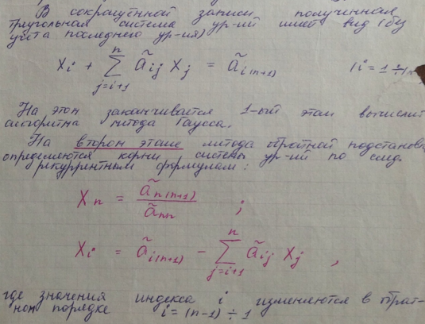 В сокращённой записи полученная
треугольная система ур-ий имеет вид (без
учёта последнего ур-ия)
Xi + Σ(j=i+1..n) ãij Xj = ãi(n+1)
На этом заканчивается 1-ый этап
алгоритма метода Гаусса.
На втором этапе метода обратной
определяются корни системы ур-ий по след.
рекуррентным формулам:
Xn = ãn(n+1) / ãnn ;
Xi = ãi(n+1) - Σ(j=i+1..n) ãij Xj ,
где значения индекса i изменяются в обрат-
ном порядке i = (n-1) ÷ 1